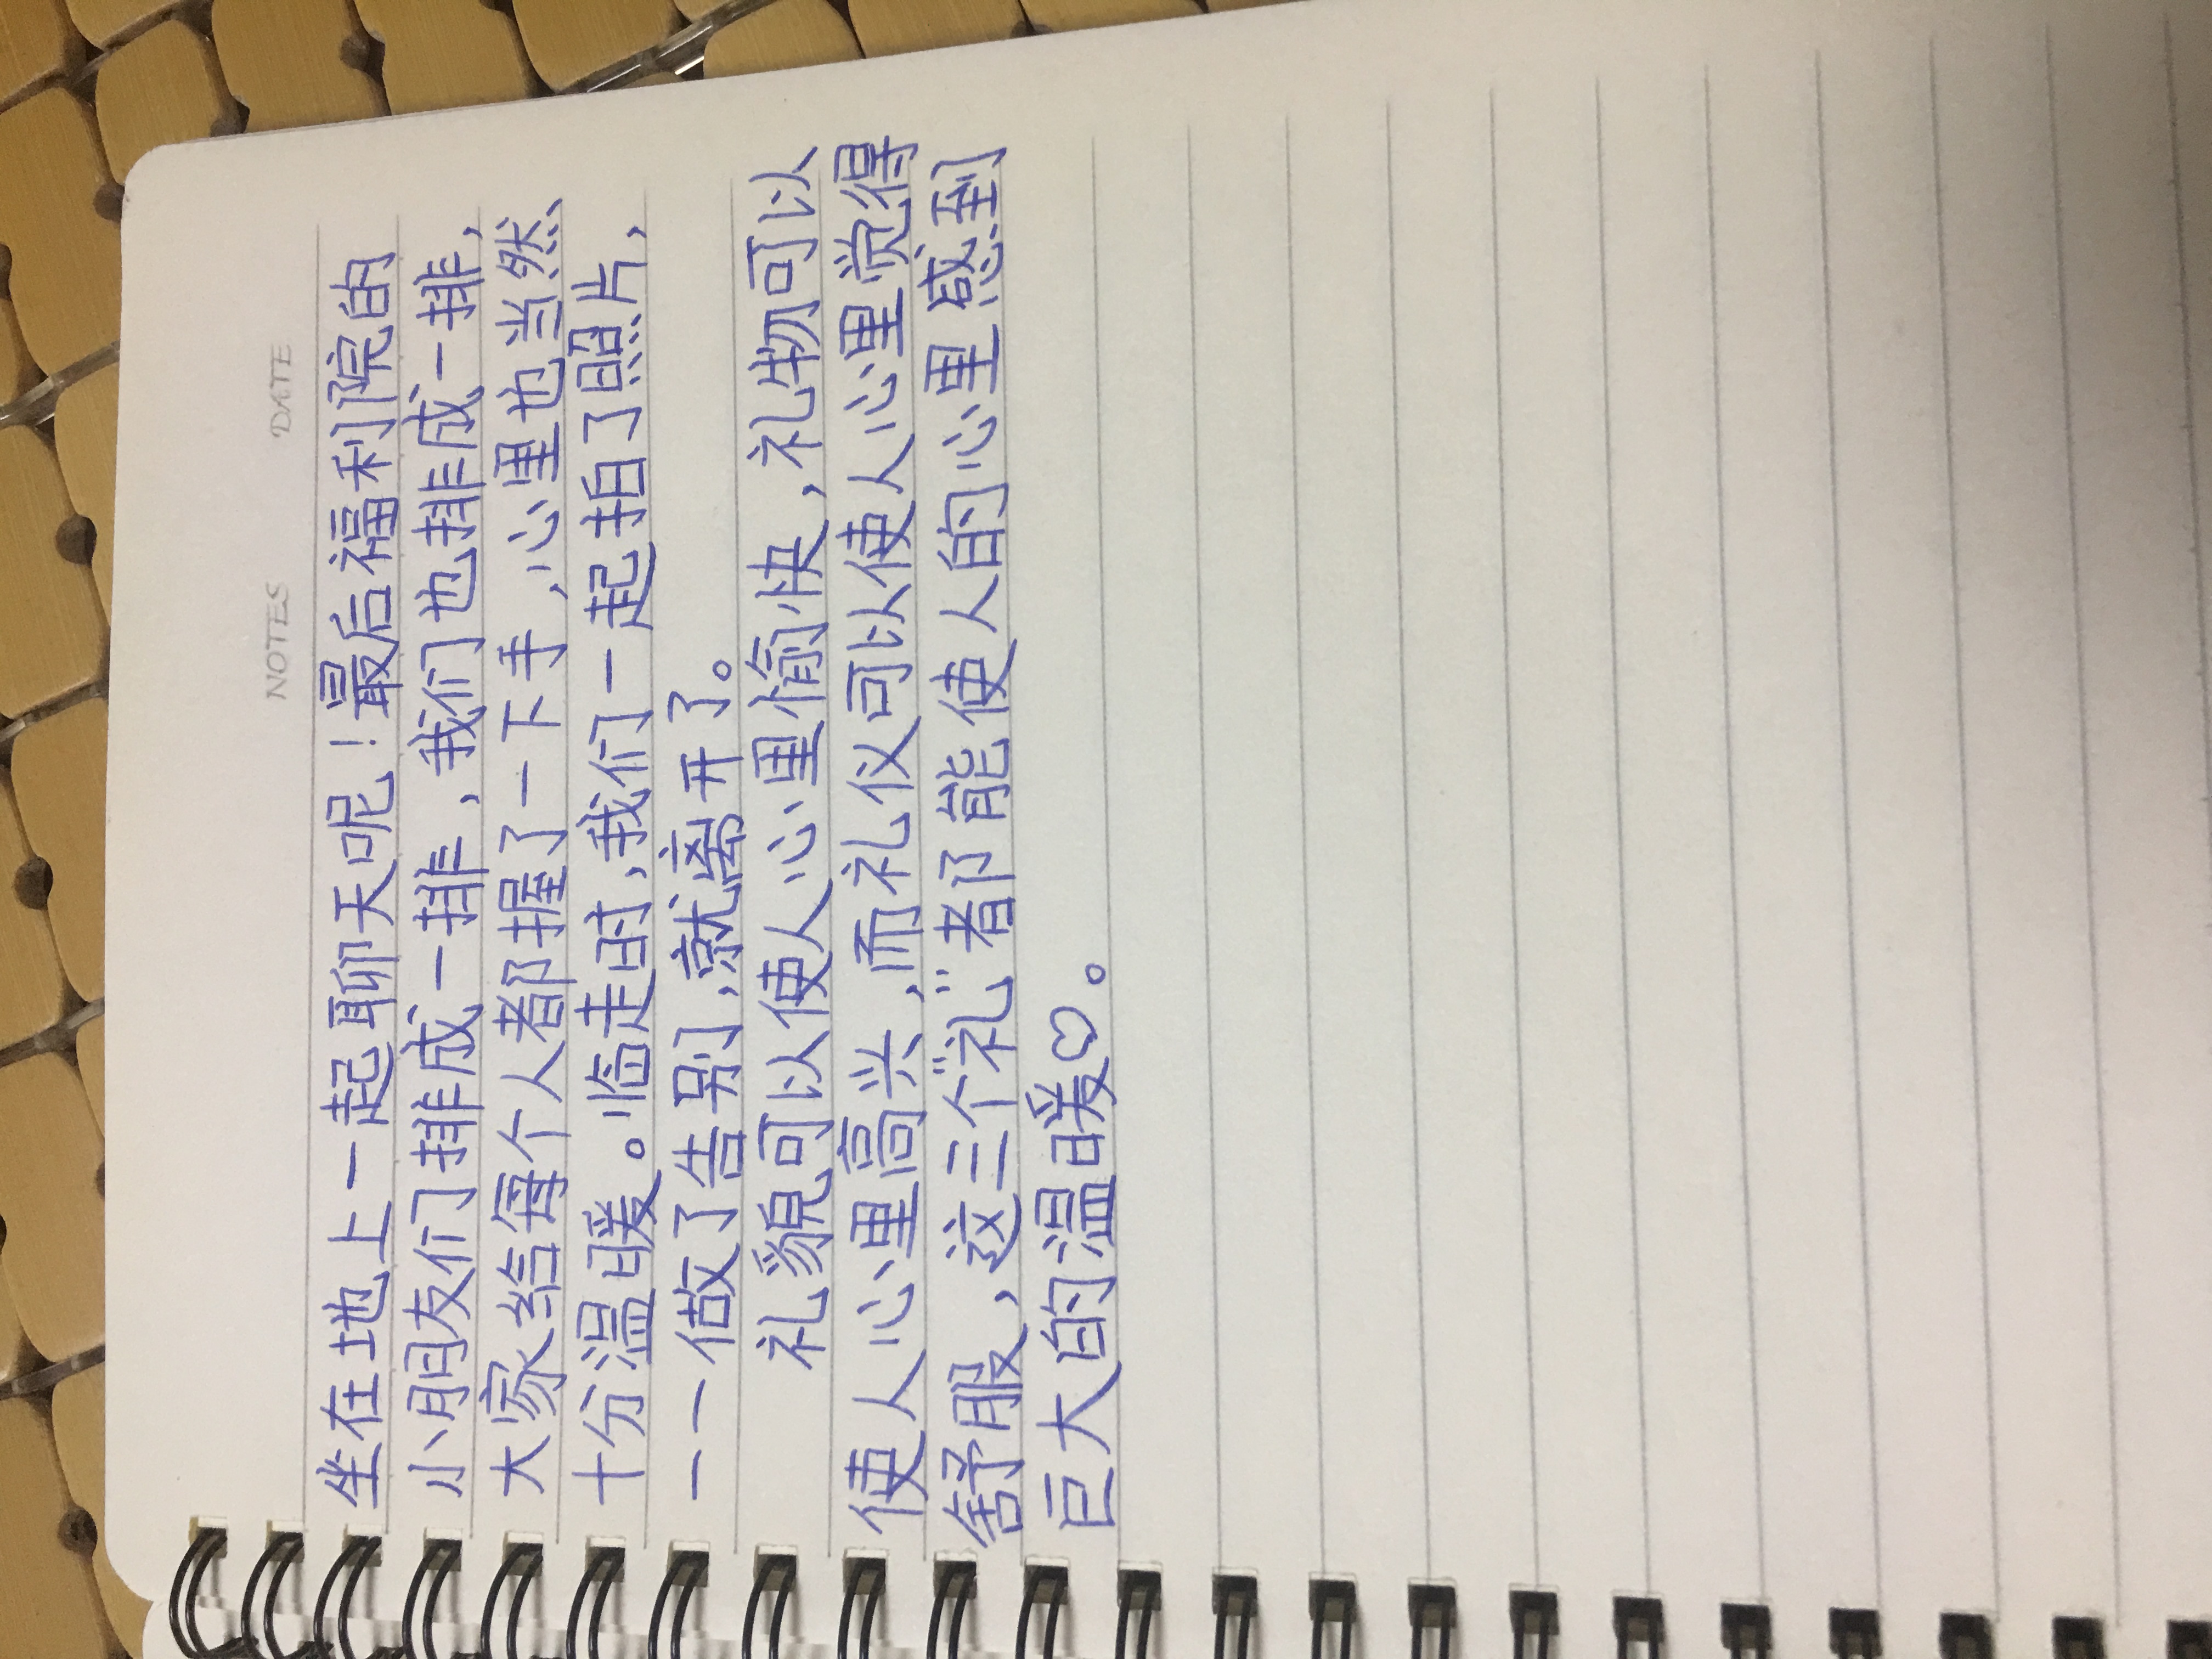 NOTES DATE
坐在地上一起聊天呢！最后福利院的
小朋友们排成一排，我们也排成一排，
大家给每个人都握了一下手，心里也当然
十分温暖。临走时，我们一起拍了照片，
一一做了告别，就离开了。
礼貌可以使人心里愉快，礼物可以
使人心里高兴，而礼仪可以使人心里觉得
舒服，这三个“礼”都能使人的心里感到
巨大的温暖♡。